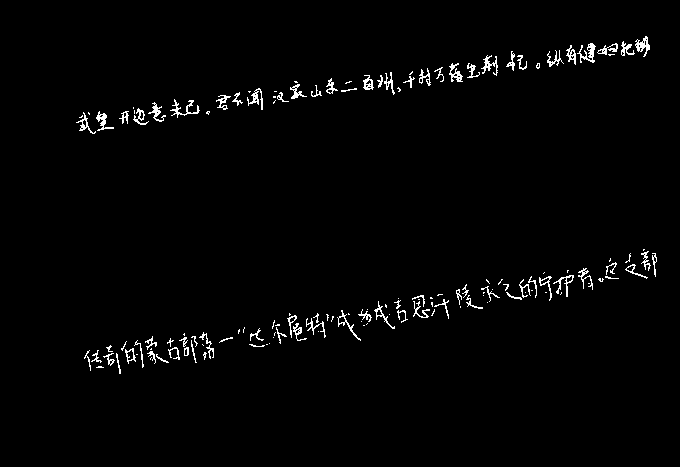 武皇开边意未已。君不闻汉家山东二百州,千村万落生荆杞。纵有健妇把锄
传奇的蒙古部落一“达尔扈特”成为成吉思汗陵永久的守护者。这支部